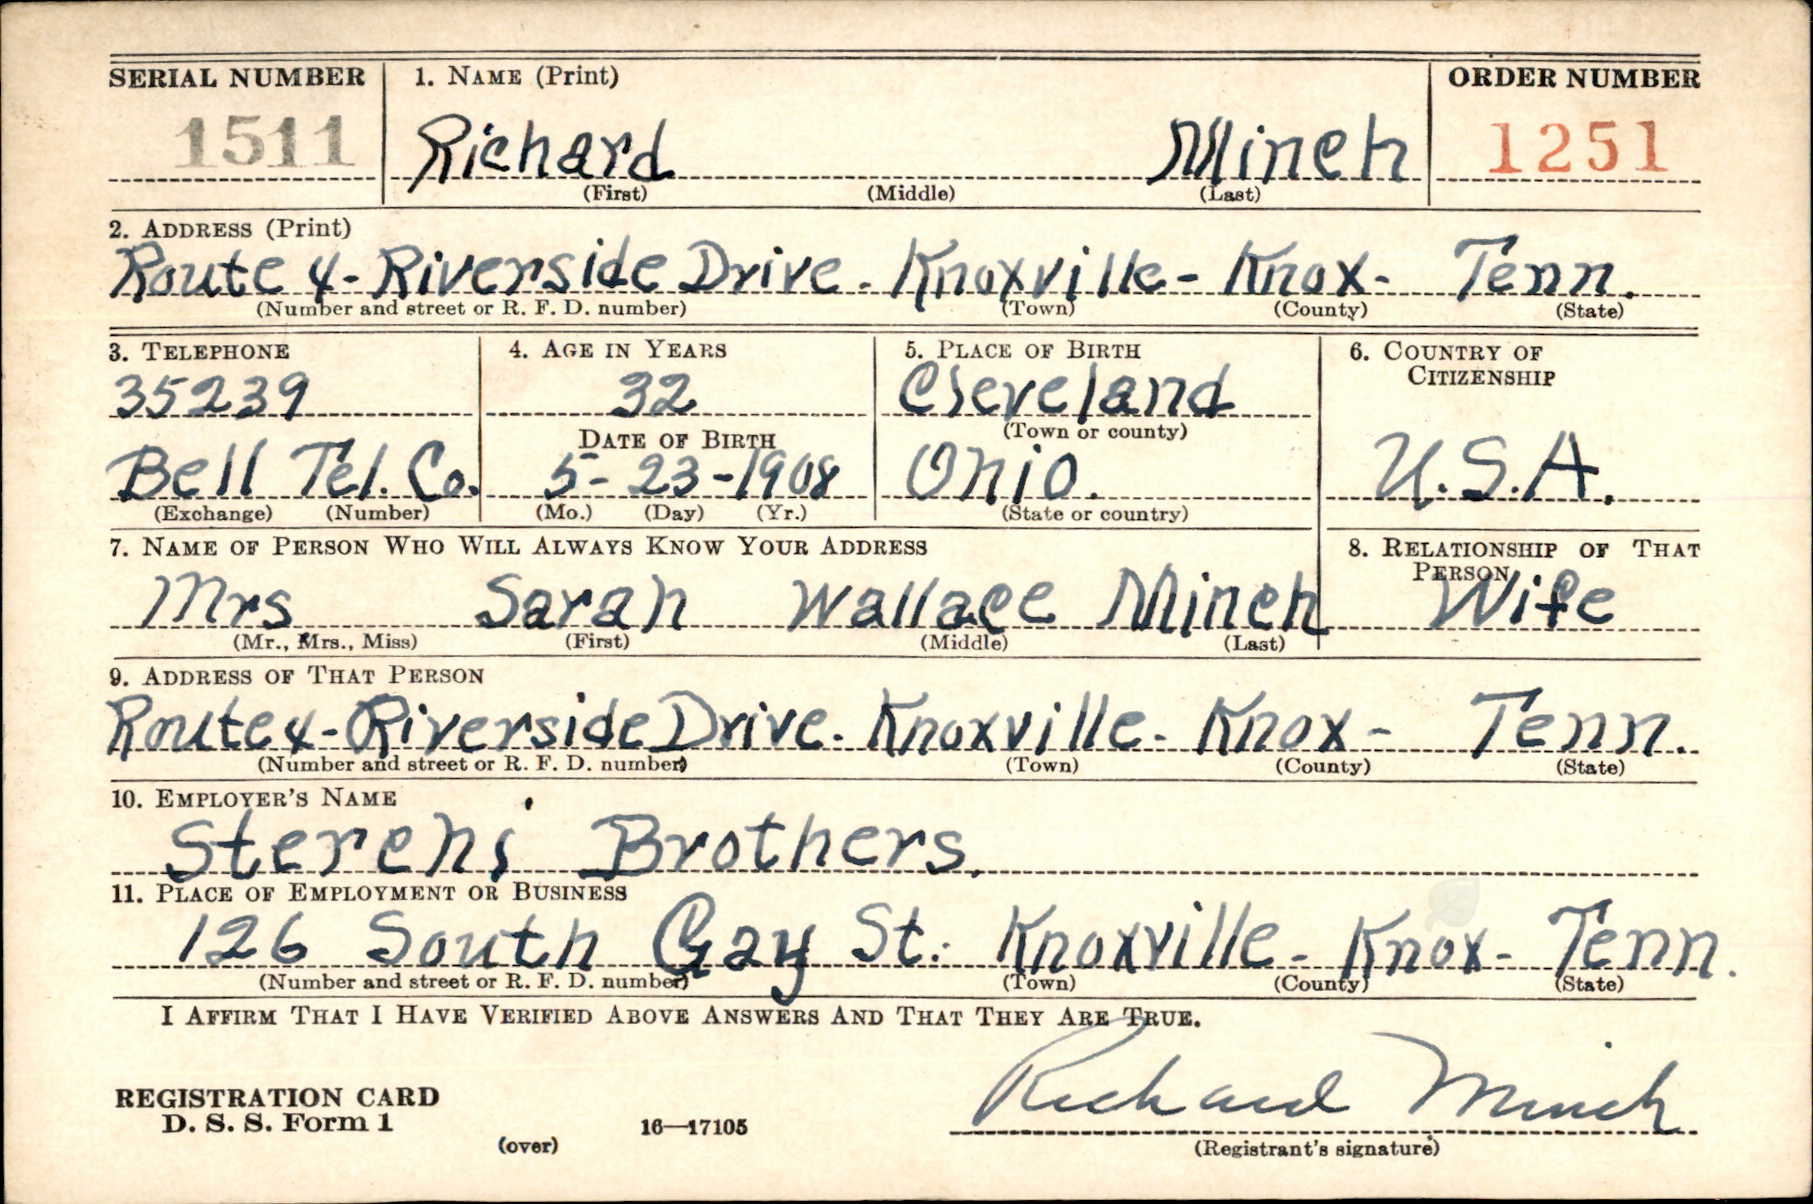 SERIAL NUMBER 1. NAME (Print) ORDER NUMBER
1511 Richard Minch 1251
(First) (Middle) (Last)
2. ADDRESS (Print)
Route 4- Riverside Drive. Knoxville- Knox- Tenn.
(Number and street or R. F. D. number) (Town) (County) (State)
3. TELEPHONE 4. AGE IN YEARS 5. PLACE OF BIRTH 6. COUNTRY OF CITIZENSHIP
35239 32 Cleveland
DATE OF BIRTH (Town or county)
Bell Tel. Co. 5-23-1908 Ohio. U.S.A.
(Exchange) (Number) (Mo.) (Day) (Yr.) (State or country)
7. NAME OF PERSON WHO WILL ALWAYS KNOW YOUR ADDRESS 8. RELATIONSHIP OF THAT PERSON
Mrs Sarah Wallace Minch Wife
(Mr., Mrs., Miss) (First) (Middle) (Last)
9. ADDRESS OF THAT PERSON
Route 4- Riverside Drive. Knoxville- Knox- Tenn.
(Number and street or R. F. D. number) (Town) (County) (State)
10. EMPLOYER'S NAME
Sterchi Brothers.
11. PLACE OF EMPLOYMENT OR BUSINESS
126 South Gay St. Knoxville- Knox- Tenn.
(Number and street or R. F. D. number) (Town) (County) (State)
I AFFIRM THAT I HAVE VERIFIED ABOVE ANSWERS AND THAT THEY ARE TRUE.
Richard Minch
REGISTRATION CARD
D. S. S. Form 1
(over) 16—17105 (Registrant's signature)